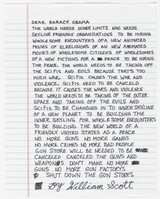 DEAR. BARACK OBAMA
THE WORLD NEEDS INNER LIMITS WHO NEEDS
SKYLINE FRIENDLY ORGANIZATIONS TO BE HUMAN
WHOLESOME ENCOUNTERS OF A NEW ANOTHER
MOVIES OF
MOVIES OF WHOLESOME CITIZENS OF WHOLESOMES
OF A NEW FICTIONS FOR A PEACE TO BE HUMAN
PEACE. THE WORLD NEEDS TO BE TAKEN OFF
THE SCIFIS AND EVILS BECAUSE THAT'S TOO
MUCH WAR. SCIFIS CAUSES THE WAR AND
VIOLENCE. SCIFIS NEED TO BE CANCELED
BECAUSE IT CAUSES WARS AND VIOLENCE
THE WORLD NEEDS TO BE TAKES OF THE OUTER
SPACE AND TAKING OFF THE EVILS AND
SCIFIS TO BE CHANGED IN TO INNER SKYLINE
OF A NEW PLANET TO BE BUILDING THE
INNER SKYLINE FOR WHOLESOME ENCOUNTERS
TO BE BUILDING THE NEW WORLD OF A
FRIENDLY UNITED STATES AS A PEACE
NO MORE GUNS NO MORE GANGS
NO MORE CRIMES NO MORE BAD PEOPLE
GUN STORE WILL BE NEEDED TO BE
CANCELED CANCELED THE GUNS AND
WEAPONS DON'T MAKE NO MORE
GUNS NO MORE GUN FACTORYS
SHUT DOWN THE GUN STORES
BY William Scott